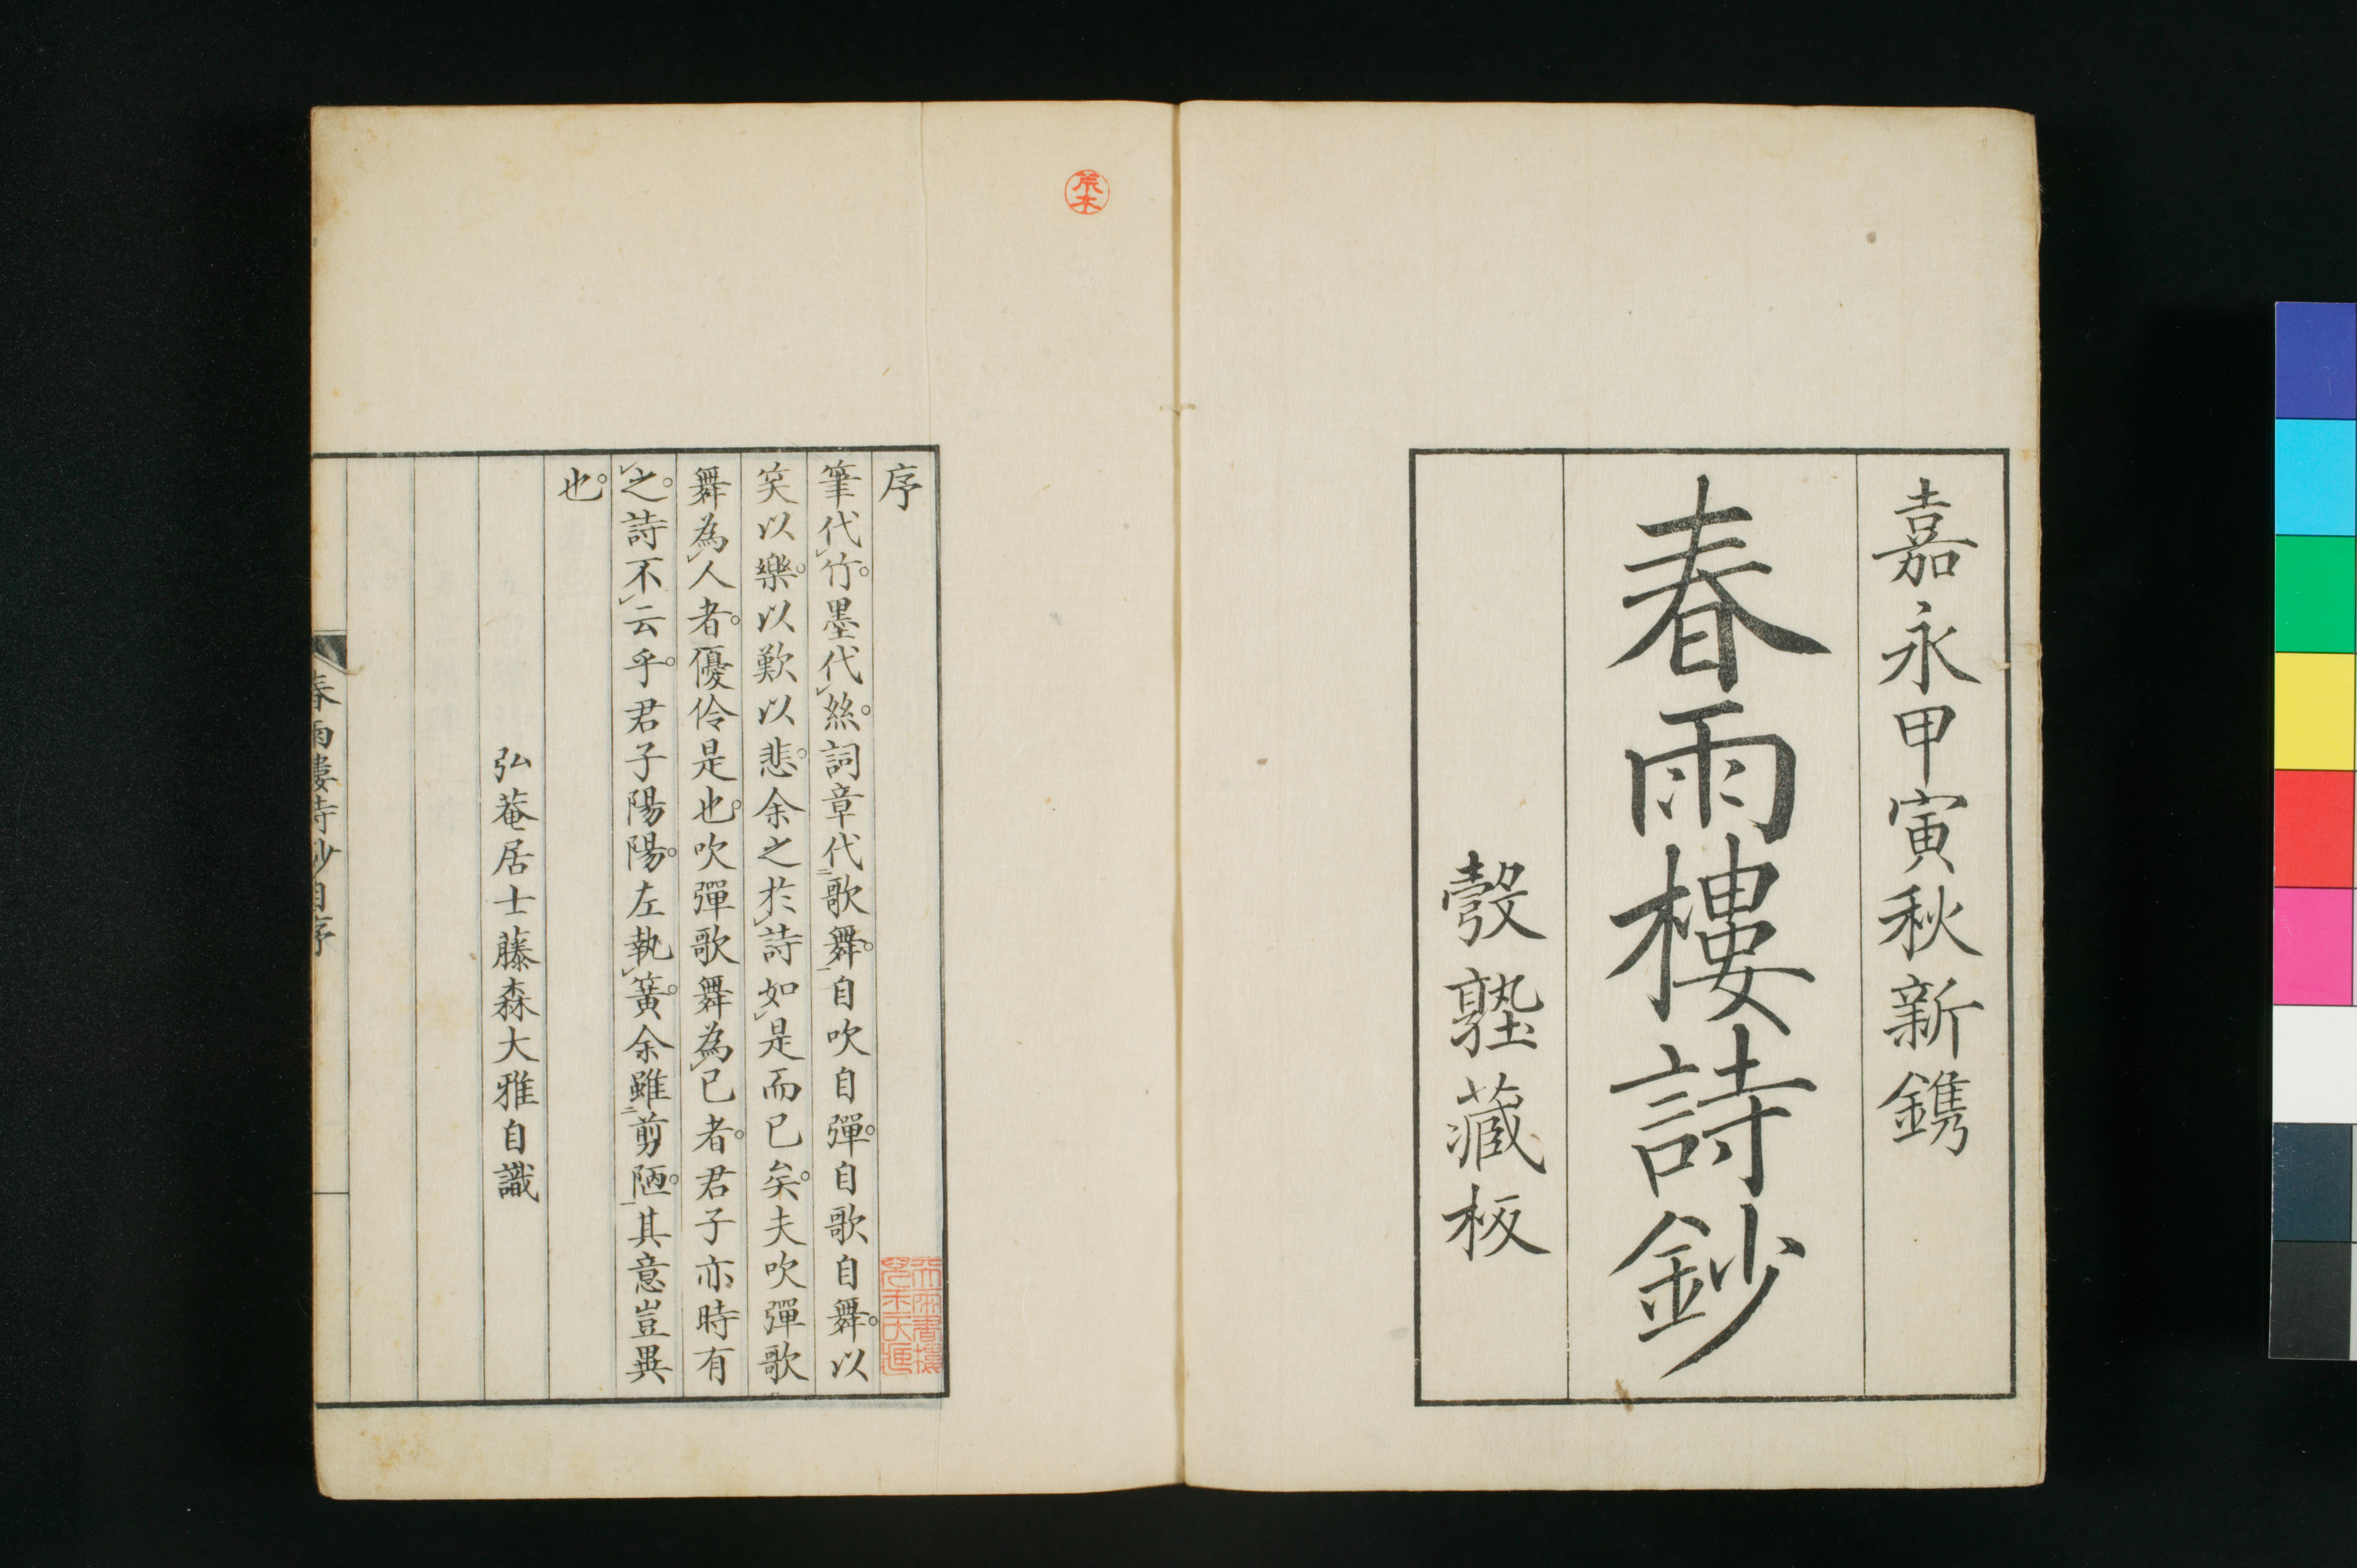 嘉永甲寅秋新鐫
春雨樓詩鈔
彀塾藏板
荒木
序
筆代竹。墨代絲。詞章代歌舞。自吹自彈。自歌自舞。以
笑以樂。以歎以悲。余之於詩如是而已矣。夫吹彈歌
舞為人者。優伶是也。吹彈歌舞為己者。君子亦時有
之。詩不云乎。君子陽陽。左執簧。余雖剪陋。其意豈異
也。
弘菴居士藤森大雅自識
春雨樓詩鈔自序